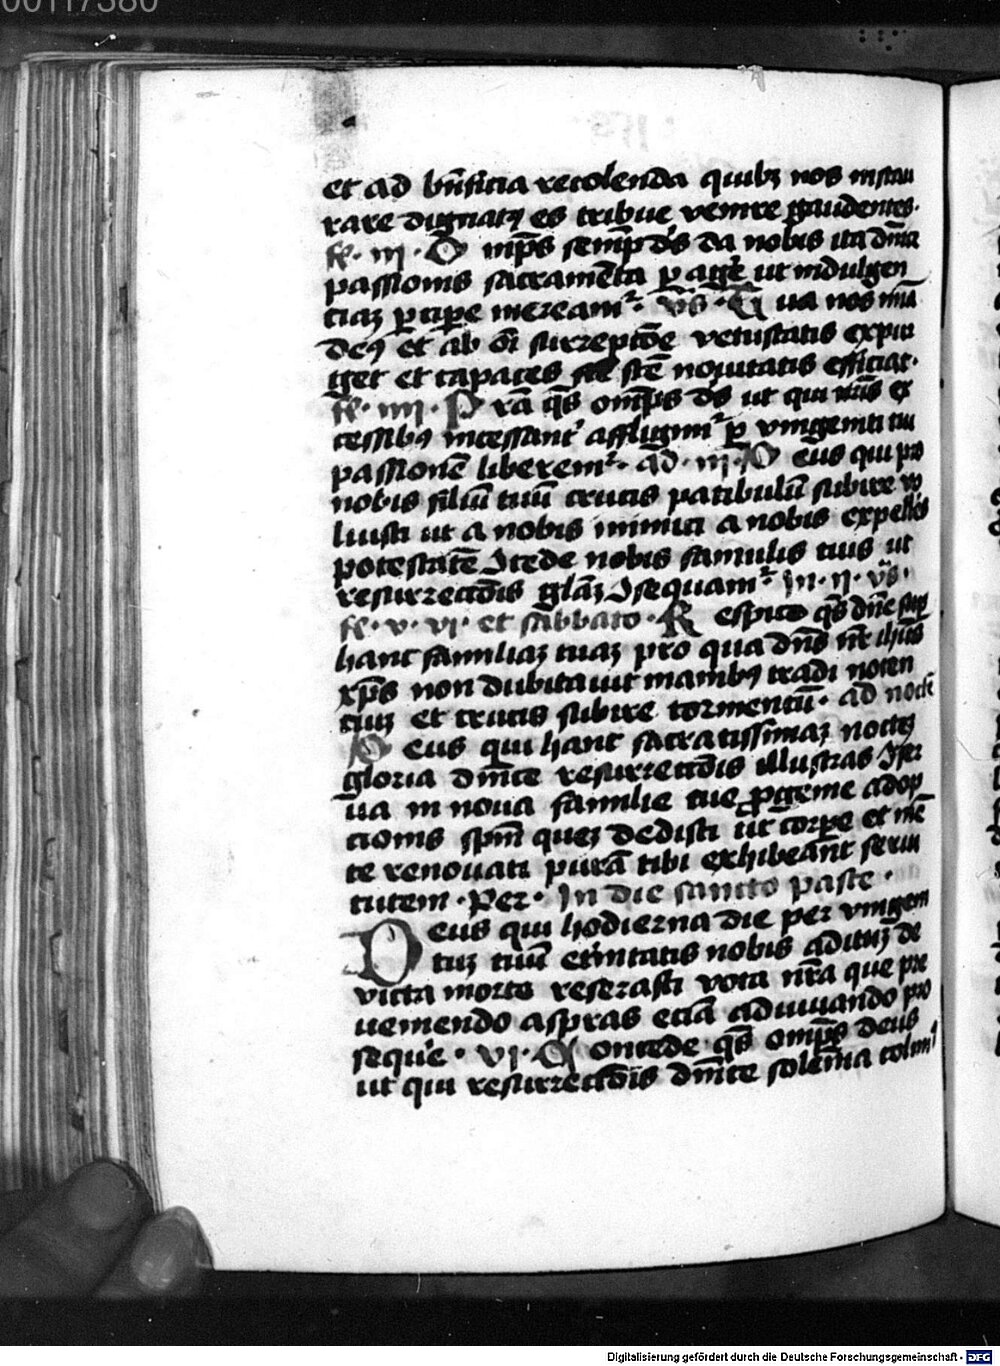 00117380
et ad bn̄ficia recolenda quibꝫ nos instau
rare dignatꝰ es tribue venire gaudentes.
fe. iii. O mp̄s semp̄ ds̄ da nobis ita dn̄ica
passionis sacramēta pagē ut indulgen
ciaꝫ ꝑcipe meream᷑. vs̄. T ua nos mīa
deꝰ et ab oī surreptōe vetustatis expur
get et capaces scē nouitatis efficiat.
fe. iiii. P ra qs̄ omps̄ ds̄ ut qui nr̄is ex
cessibꝰ incessant᷑ affligim᷑ ꝑ vnigeniti tui
passionē liberem᷑. ad. iii. D eus qui pro
nobis filiū tuū crucis patibulū subire vo
luisti ut a nobis inimici a nobis expelles
potestatē ɔcede nobis famulis tuis ut
resurrectōis glaꝫ ɔsequam᷑. in. ii. vs̄.
fe. v. vi. et sabbato. R espice qs̄ dn̄e sup
hanc familiaꝫ tuaꝫ pro qua dn̄s nr̄ ihūs
xp̄s non dubitauit manibꝰ tradi nocen
ciuꝫ et crucis subire tormentū. ad noctē
D eus qui hanc sacratissimaꝫ noctē
gloria dn̄ice resurrectōis illustras ɔser
ua in noua familie tue ꝓgenie adop
cionis spm̄ queꝫ dedisti ut corꝑe et mē
te renouati purā tibi exhibeant serui
tutem. Per. In die sancto pasce.
D eus qui hodierna die per vnigeni
tuꝫ tuū et̄nitatis nobis adituꝫ de
victa morte reserasti vota nr̄a que pre
ueniendo aspiras eciā adiuuando pro
seque. vi. C oncede qs̄ omps̄ deus
ut qui resurrectōis dn̄ice solēnia colim᷑
Digitalisierung gefördert durch die Deutsche Forschungsgemeinschaft - DFG